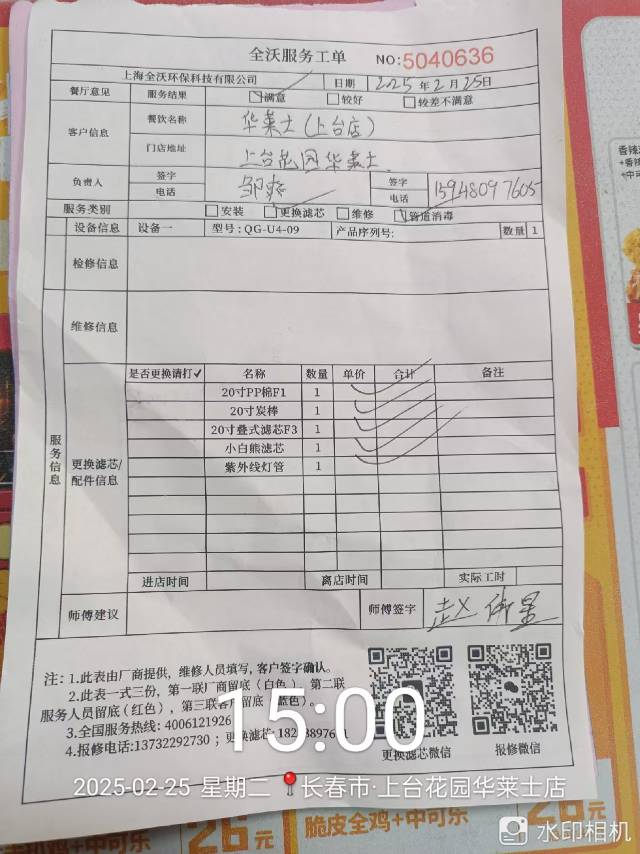 全沃服务工单 NO:5040636
上海全沃环保科技有限公司 日期 2025年2月25日
餐厅意见 服务结果 满意 较好 较差不满意
客户信息 餐饮名称 华莱士(上台店)
门店地址 上台花园华莱士
负责人 签字 电话 签字 电话 15948097605
服务类别 安装 更换滤芯 维修 管道消毒
设备信息 设备一 型号:QG-U4-09 产品序列号: 数量 1
检修信息
维修信息
服务信息
更换滤芯/配件信息
是否更换请打✓ 名称 数量 单价 合计 备注
20寸PP棉F1 1
20寸炭棒 1
20寸叠式滤芯F3 1
小白熊滤芯 1
紫外线灯管 1
进店时间 离店时间 实际工时
师傅建议 师傅签字
注:1.此表由厂商提供,维修人员填写,客户签字确认。
2.此表一式三份,第一联厂商留底(白色),第二联
服务人员留底(红色),第三联客户留底(蓝色)。
3.全国服务热线:4006121926
4.报修电话:13732292730;更换滤芯:
更换滤芯微信 报修微信
15:00
2025-02-25 星期二 长春市·上台花园华莱士店
水印相机
26元
脆皮全鸡+中可乐